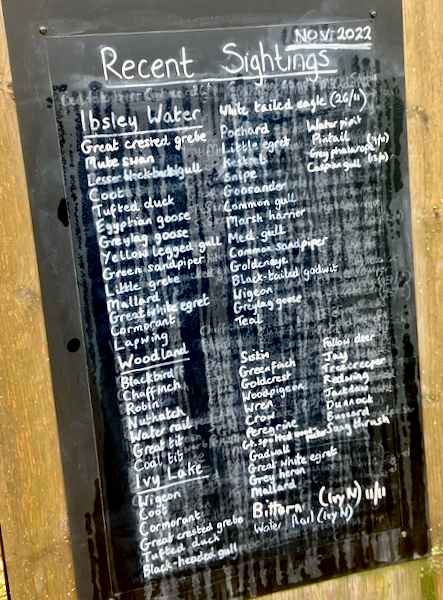 NOV: 2022
Recent Sightings
Ibsley Water
Great crested grebe
Mute swan
Lesser black-backed gull
Coot
Tufted duck
Egyptian goose
Greylag goose
Yellow legged gull
Green sandpiper
Little grebe
Mallard
Great white egret
Cormorant
Lapwing
White tailed eagle (26/11)
Pochard
Little egret
Kestrel
Snipe
Goosander
Common gull
Marsh harrier
Med. gull
Common sandpiper
Goldeneye
Black-tailed godwit
Wigeon
Greylag goose
Teal
Water pipit
Pintail
Grey phalarope
Caspian gull
Woodland
Blackbird
Chaffinch
Robin
Nuthatch
Water rail
Great tit
Coal tit
Siskin
Greenfinch
Goldcrest
Woodpigeon
Wren
Crow
Peregrine
Gt. spotted
Fallow deer
Jay
Treecreeper
Redwing
Jackdaw
Dunnock
Buzzard
Song thrush
Ivy Lake
Wigeon
Coot
Cormorant
Great crested grebe
Tufted duck
Black-headed gull
Gadwall
Great white egret
Grey heron
Mallard
Bittern (Ivy N) 11/11
Water Rail (Ivy N)